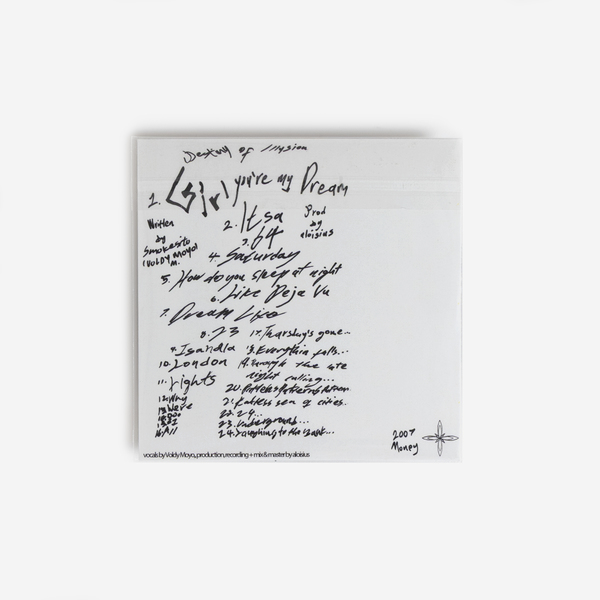 Destiny of Illusion
1. Girl you're my Dream
Written by Smokesito (VOLDY MOYO) M.
2. Itsa
Prod by aloisius
3. 64
4. Saturday
5. How do you sleep at night
6. Like Deja Vu
7. Dream Like
8. 23
9. Isandla
10. London
11. rights
12. Why
13. Were
16. All
17. Thursday's gone...
18. Everythin falls...
19. enough the late night calling...
20.
21. Endless sea of cities.
22. 24...
23. Underground...
24. Laughing to the bank...
2007
Money
vocals by Voldy Moyo, production, recording + mix & master by aloisius